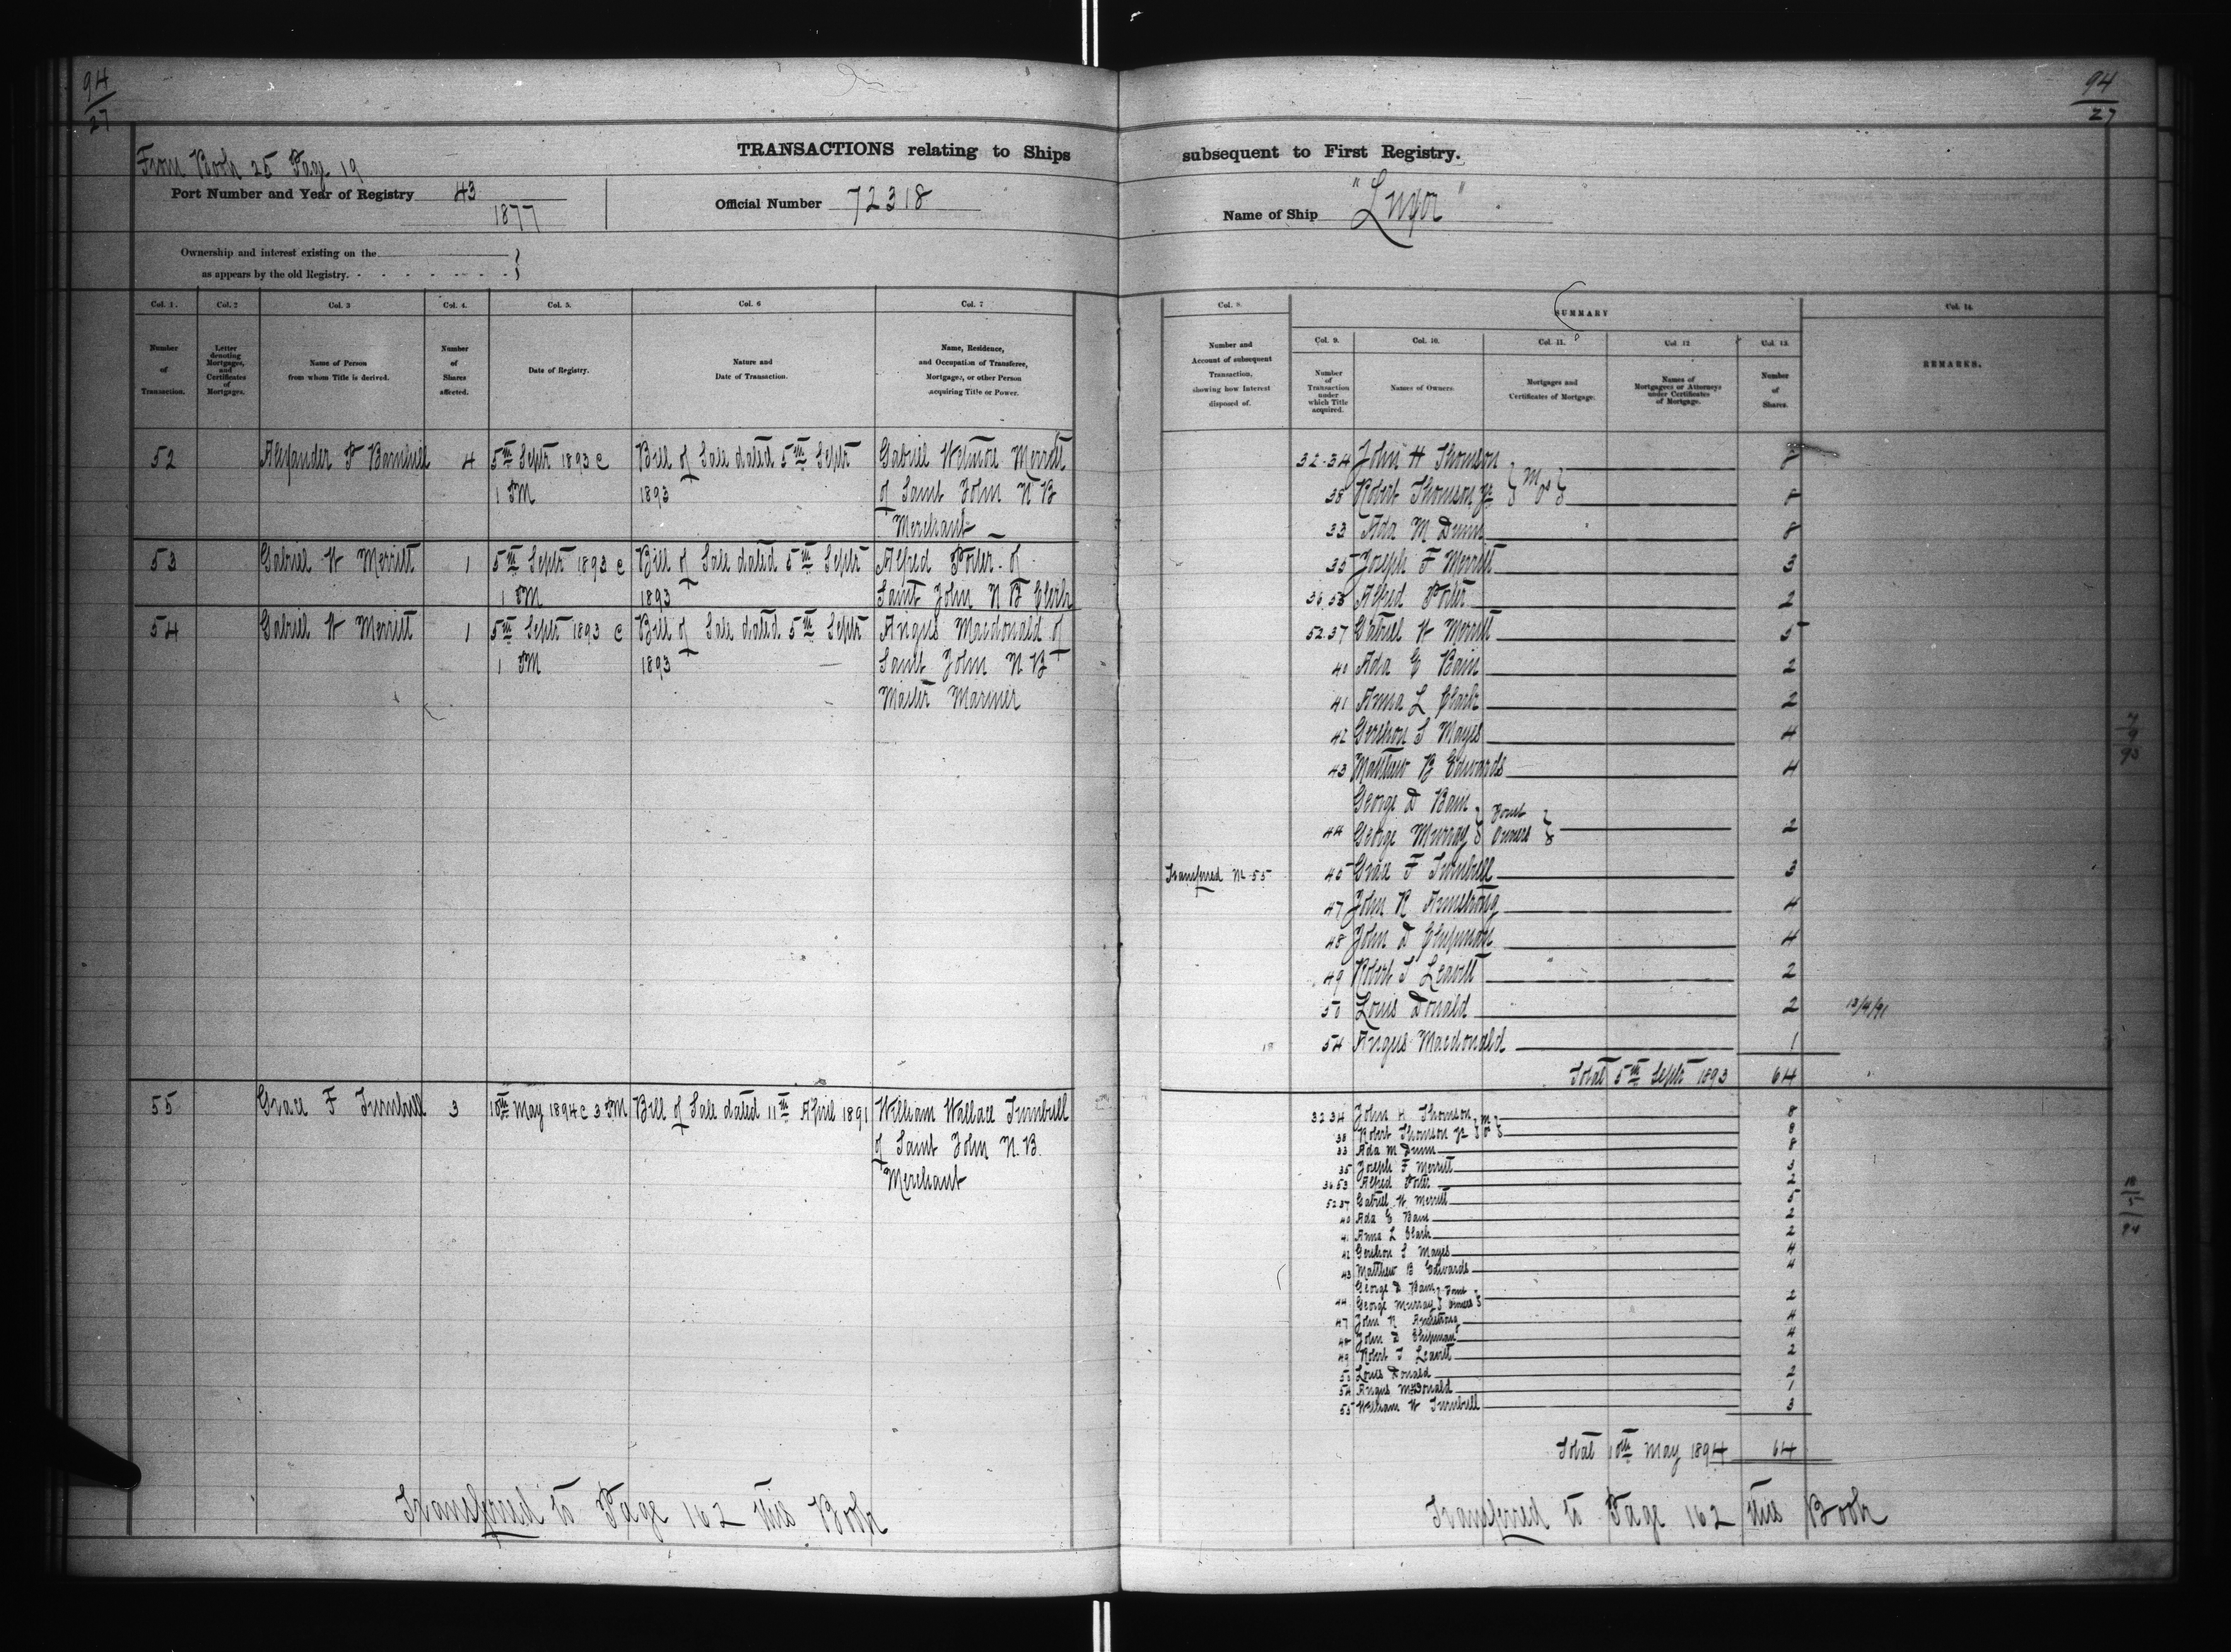 94
27
94
27
TRANSACTIONS relating to Ships subsequent to First Registry.
From Book 25 Page 19
Port Number and Year of Registry 43
1877
Official Number 72318
Name of Ship "Lugor"
Ownership and interest existing on the
as appears by the old Registry.
Col. 1. Col. 2 Col. 3 Col. 4. Col. 5. Col. 6 Col. 7
Number of Transaction.
Letter denoting Mortgages, and Certificates of Mortgages.
Name of Person from whom Title is derived.
Number of Shares affected.
Date of Registry.
Nature and Date of Transaction.
Name, Residence, and Occupation of Transferee, Mortgagee, or other Person acquiring Title or Power.
52 Alexander P Barnhill 4 5th Septr 1893 @ Bill of Sale dated 5th Septr Gabriel Wetmore Merritt
1 PM 1893 of Saint John N B
Merchant
53 Gabriel W Merritt 1 5th Septr 1893 @ Bill of Sale dated 5th Septr Alfred Porter of
1 PM 1893 Saint John N B Clerk
54 Gabriel W Merritt 1 5th Septr 1893 @ Bill of Sale dated 5th Septr Angus Macdonald of
1 PM 1893 Saint John N B
Master Mariner
55 Grace F Turnbull 3 10th May 1894 @ 3 PM Bill of Sale dated 11th April 1891 William Wallace Turnbull
of Saint John N.B.
Merchant
Transferred to Page 162 this Book
Col. 8.
Number and Account of subsequent Transaction, showing how Interest disposed of.
SUMMARY
Col. 9. Col. 10. Col. 11. Col. 12 Col. 13. Col. 14.
Number of Transaction under which Title acquired.
Names of Owners.
Mortgages and Certificates of Mortgage.
Names of Mortgagees or Attorneys under Certificates of Mortgage.
Number of Shares.
REMARKS.
32.34 John H Thomson 8
38 Robert Thomson Jr } M O } 8
33 Ada M Dunn 8
35 Joseph F Merritt 3
36.53 Alfred Porter 2
52.37 Gabriel W Merritt 5
40 Ada E Bain 2
41 Anna L Clark 2
42 Gershon S Mayes 4
43 Matthew B Edwards 4
George D Bain } Joint
44 George Murray } Owners } 2
Transferred No 55 45 Grace F Turnbull 3
47 John R Armstrong 4
48 John D Chipman 4
49 Robert T Leavitt 2
50 Louis Donald 2 13/4/91
54 Angus Macdonald 1
Total 5th Septr 1893 64
7
9
93
32 34 John H Thomson 8
38 Robert Thomson Jr } M O } 8
33 Ada M Dunn 8
35 Joseph F Merritt 3
36 53 Alfred Porter 2
52 37 Gabriel W Merritt 5
40 Ada E Bain 2
41 Anna L Clark 2
42 Gershon S Mayes 4
43 Matthew B Edwards 4
George D Bain } Joint
44 George Murray } Owners } 2
47 John R Armstrong 4
48 John D Chipman 4
49 Robert T Leavitt 2
50 Louis Donald 2
54 Angus McDonald 1
55 William W Turnbull 3
Total 10th May 1894 64
5
94
Transferred to Page 162 this Book